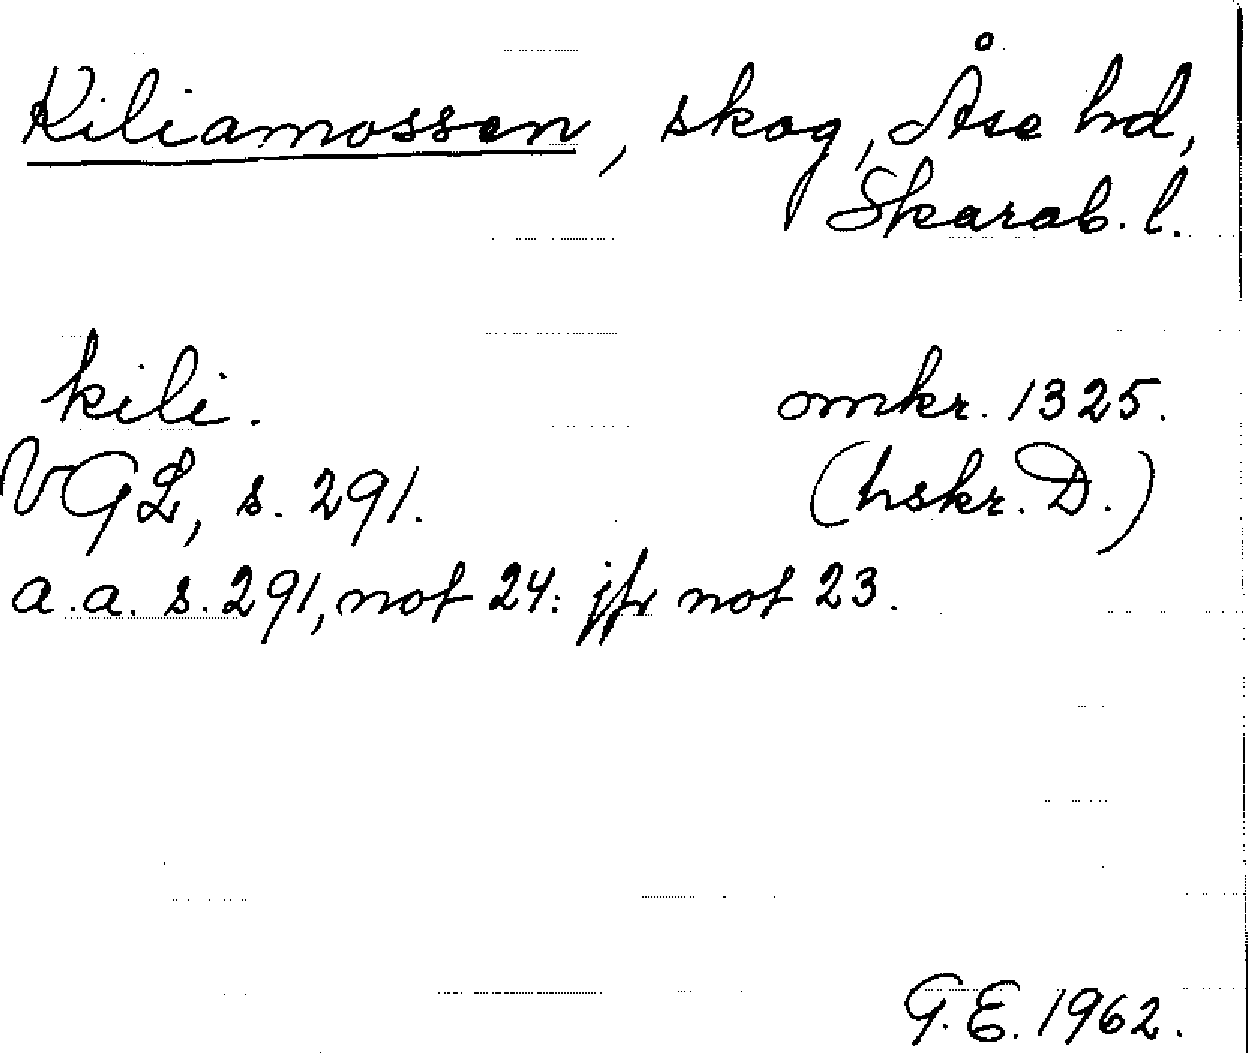 Kiliamossen, skog, Åse hd,
Skarab. l.
kili. omkr. 1325.
VGL, s. 291. (hskr. D.)
a.a. s. 291, not 24: jfr not 23.
G.E. 1962.